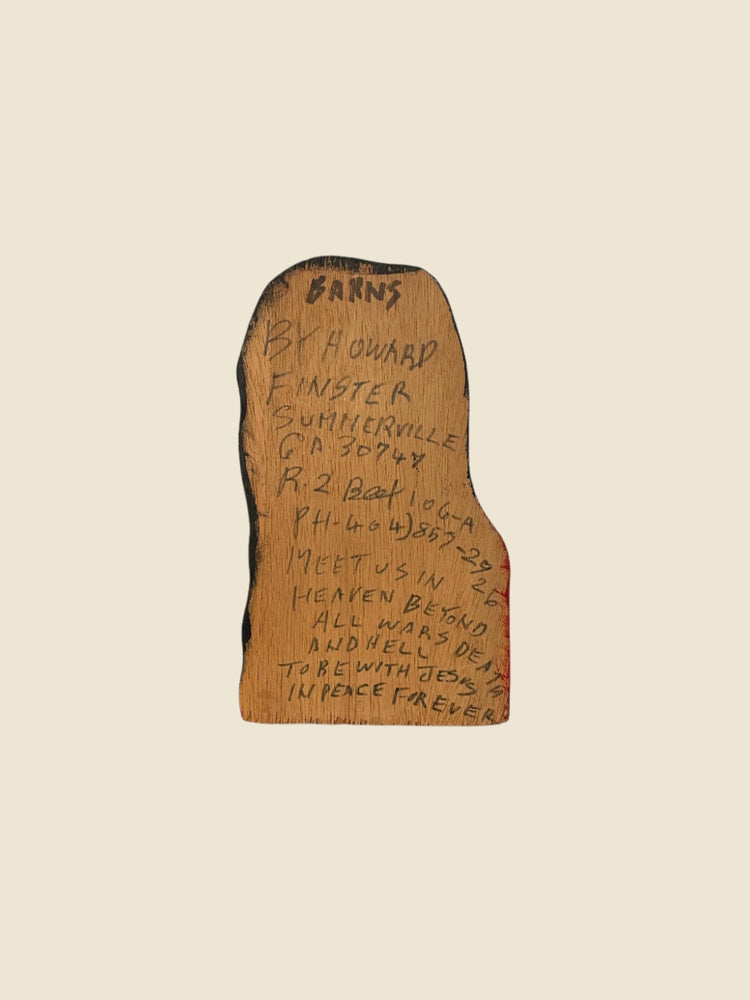 BARNS
BY HOWARD
FINSTER
SUMMERVILLE
GA 30747
R.2 Box 106-A
PH-404)857-29
26
MEET US IN
HEAVEN BEYOND
ALL WARS DEATH
AND HELL
TO BE WITH JESUS
IN PEACE FOREVER